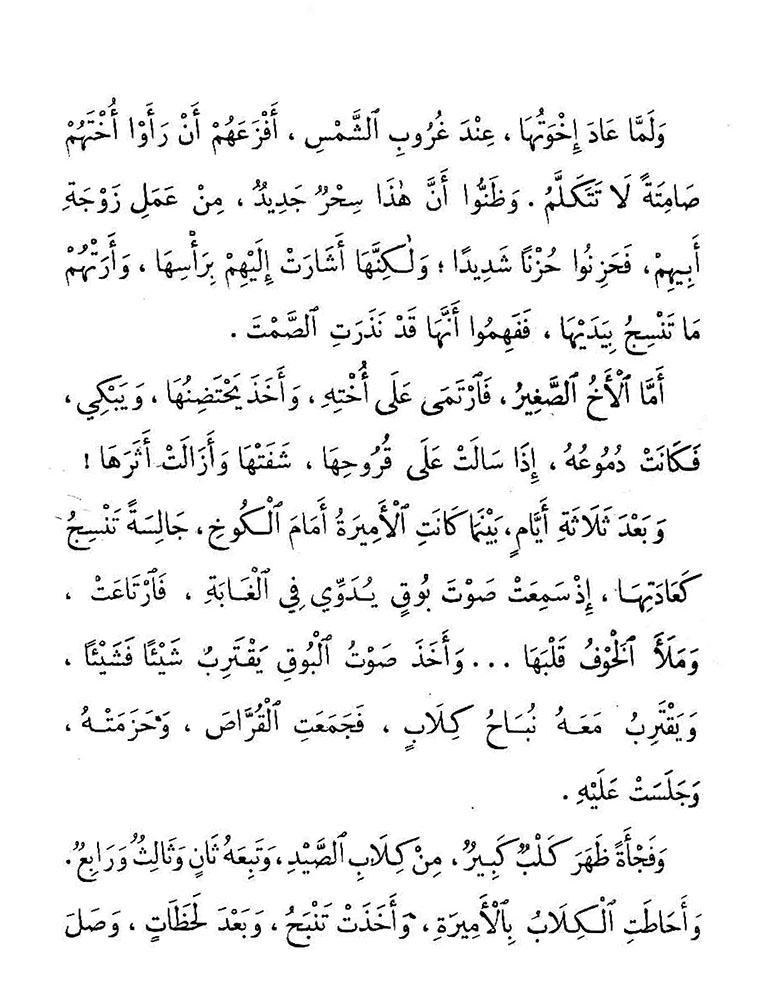 وَلَمَّا عَادَ إِخْوَتُهَا ، عِنْدَ غُرُوبِ ٱلشَّمْسِ ، أَفْزَعَهُمْ أَنْ رَأَوْا أُخْتَهُمْ
صَامِتَةً لَا تَتَكَلَّمُ . وَظَنُّوا أَنَّ هٰذَا سِحْرٌ جَدِيدٌ ، مِنْ عَمَلِ زَوْجَةِ
أَبِيهِمْ ، فَحَزِنُوا حُزْنًا شَدِيدًا ؛ وَلٰكِنَّهَا أَشَارَتْ إِلَيْهِمْ بِرَأْسِهَا ، وَأَرَتْهُمْ
مَا تَنْسِجُ بِيَدَيْهَا ، فَفَهِمُوا أَنَّهَا قَدْ نَذَرَتِ ٱلصَّمْتَ .
أَمَّا ٱلْأَخُ ٱلصَّغِيرُ ، فَٱرْتَمَى عَلَى أُخْتِهِ ، وَأَخَذَ يَحْتَضِنُهَا ، وَيَبْكِي ،
فَكَانَتْ دُمُوعُهُ ، إِذَا سَالَتْ عَلَى قُرُوحِهَا ، شَفَتْهَا وَأَزَالَتْ أَثَرَهَا !
وَبَعْدَ ثَلَاثَةِ أَيَّامٍ ، بَيْنَمَا كَانَتِ ٱلْأَمِيرَةُ أَمَامَ ٱلْكُوخِ ، جَالِسَةً تَنْسِجُ
كَعَادَتِهَا ، إِذْ سَمِعَتْ صَوْتَ بُوقٍ يُدَوِّي فِي ٱلْغَابَةِ ، فَٱرْتَاعَتْ ،
وَمَلَأَ ٱلْخَوْفُ قَلْبَهَا ... وَأَخَذَ صَوْتُ ٱلْبُوقِ يَقْتَرِبُ شَيْئًا فَشَيْئًا ،
وَيَقْتَرِبُ مَعَهُ نُبَاحُ كِلَابٍ ، فَجَمَعَتِ ٱلْقُرَّاصَ ، وَحَزَمَتْهُ ،
وَجَلَسَتْ عَلَيْهِ .
وَفَجْأَةً ظَهَرَ كَلْبٌ كَبِيرٌ ، مِنْ كِلَابِ ٱلصَّيْدِ ، وَتَبِعَهُ ثَانٍ وَثَالِثٌ وَرَابِعٌ .
وَأَحَاطَتِ ٱلْكِلَابُ بِٱلْأَمِيرَةِ ، وَأَخَذَتْ تَنْبَحُ ، وَبَعْدَ لَحَظَاتٍ ، وَصَلَ